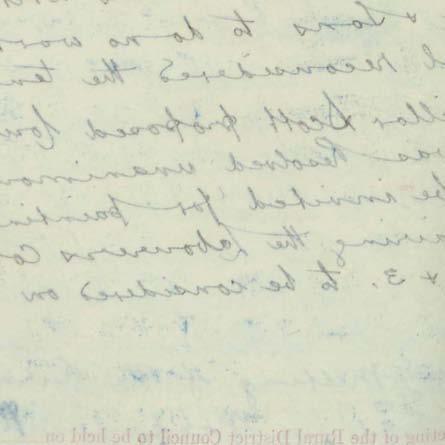 & Sons to do no wor
l reconsidered the ten
illor Scott proposed Cou
was Resolved unanimou
be invited for paintin
airing the Labourers Co
& 3. to be considered on
ting of the Rural District Council to be held on